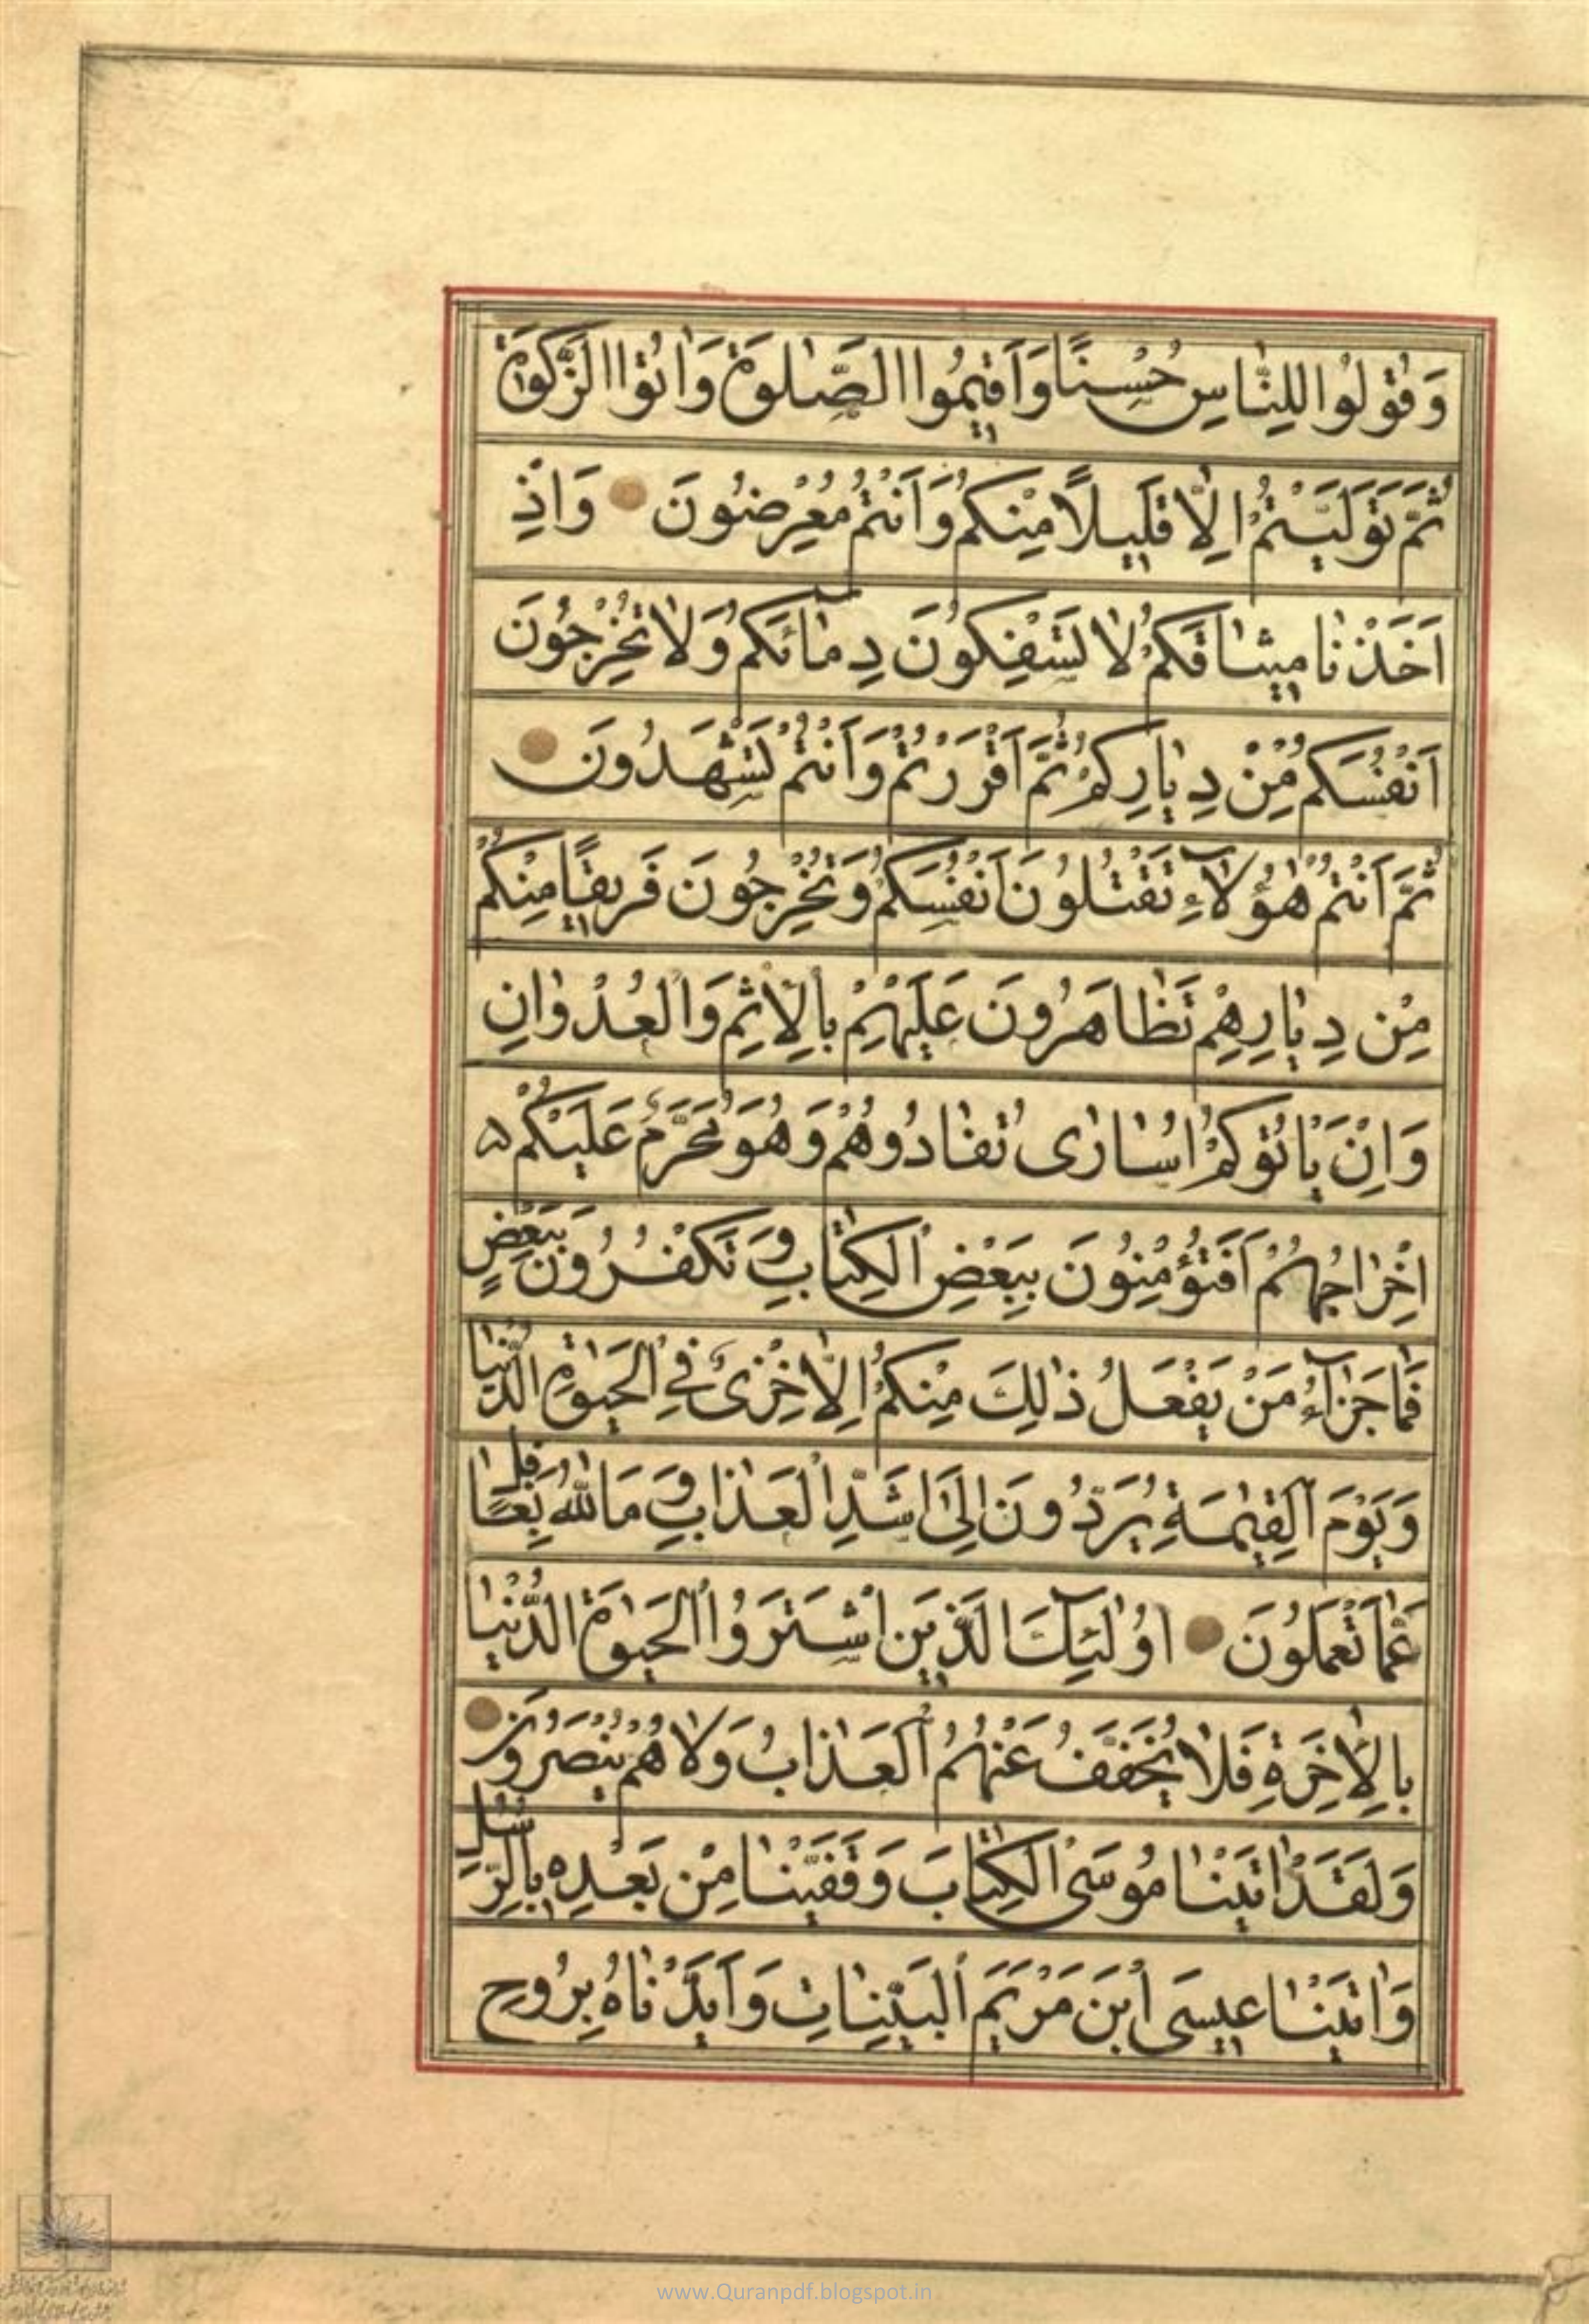 وَقُولُوا لِلنّٰاسِ حُسْنًا وَاَقِيمُوا الصَّلٰوةَ وَاٰتُوا الزَّكٰوةَ
ثُمَّ تَوَلَّيْتُمْ اِلّٰا قَلِيلًا مِنْكُمْ وَاَنْتُمْ مُعْرِضُونَ وَاِذْ
اَخَذْنٰا مِيثٰاقَكُمْ لٰا تَسْفِكُونَ دِمٰائَكُمْ وَلٰا تُخْرِجُونَ
اَنْفُسَكُمْ مِنْ دِيٰارِكُمْ ثُمَّ اَقْرَرْتُمْ وَاَنْتُمْ تَشْهَدُونَ
ثُمَّ اَنْتُمْ هٰؤُلٰآءِ تَقْتُلُونَ اَنْفُسَكُمْ وَتُخْرِجُونَ فَرِيقًا مِنْكُمْ
مِنْ دِيٰارِهِمْ تَظٰاهَرُونَ عَلَيْهِمْ بِالْاِثْمِ وَالْعُدْوٰانِ
وَاِنْ يَاْتُوكُمْ اُسٰارٰى تُفٰادُوهُمْ وَهُوَ مُحَرَّمٌ عَلَيْكُمْ
اِخْرٰاجُهُمْ اَفَتُؤْمِنُونَ بِبَعْضِ الْكِتٰابِ وَتَكْفُرُونَ بِبَعْضٍ
فَمٰا جَزٰآءُ مَنْ يَفْعَلُ ذٰلِكَ مِنْكُمْ اِلّٰا خِزْىٌ فِى الْحَيٰوةِ الدُّنْيٰا
وَيَوْمَ الْقِيٰمَةِ يُرَدُّونَ اِلىٰ اَشَدِّ الْعَذٰابِ وَمَا اللّٰهُ بِغٰافِلٍ
عَمّٰا تَعْمَلُونَ اُولٰٓئِكَ الَّذِينَ اشْتَرَوُا الْحَيٰوةَ الدُّنْيٰا
بِالْاٰخِرَةِ فَلٰا يُخَفَّفُ عَنْهُمُ الْعَذٰابُ وَلٰا هُمْ يُنْصَرُونَ
وَلَقَدْ اٰتَيْنٰا مُوسَى الْكِتٰابَ وَقَفَّيْنٰا مِنْ بَعْدِهِ بِالرُّسُلِ
وَاٰتَيْنٰا عِيسَى ابْنَ مَرْيَمَ الْبَيِّنٰاتِ وَاَيَّدْنٰاهُ بِرُوحِ
www.Quranpdf.blogspot.in